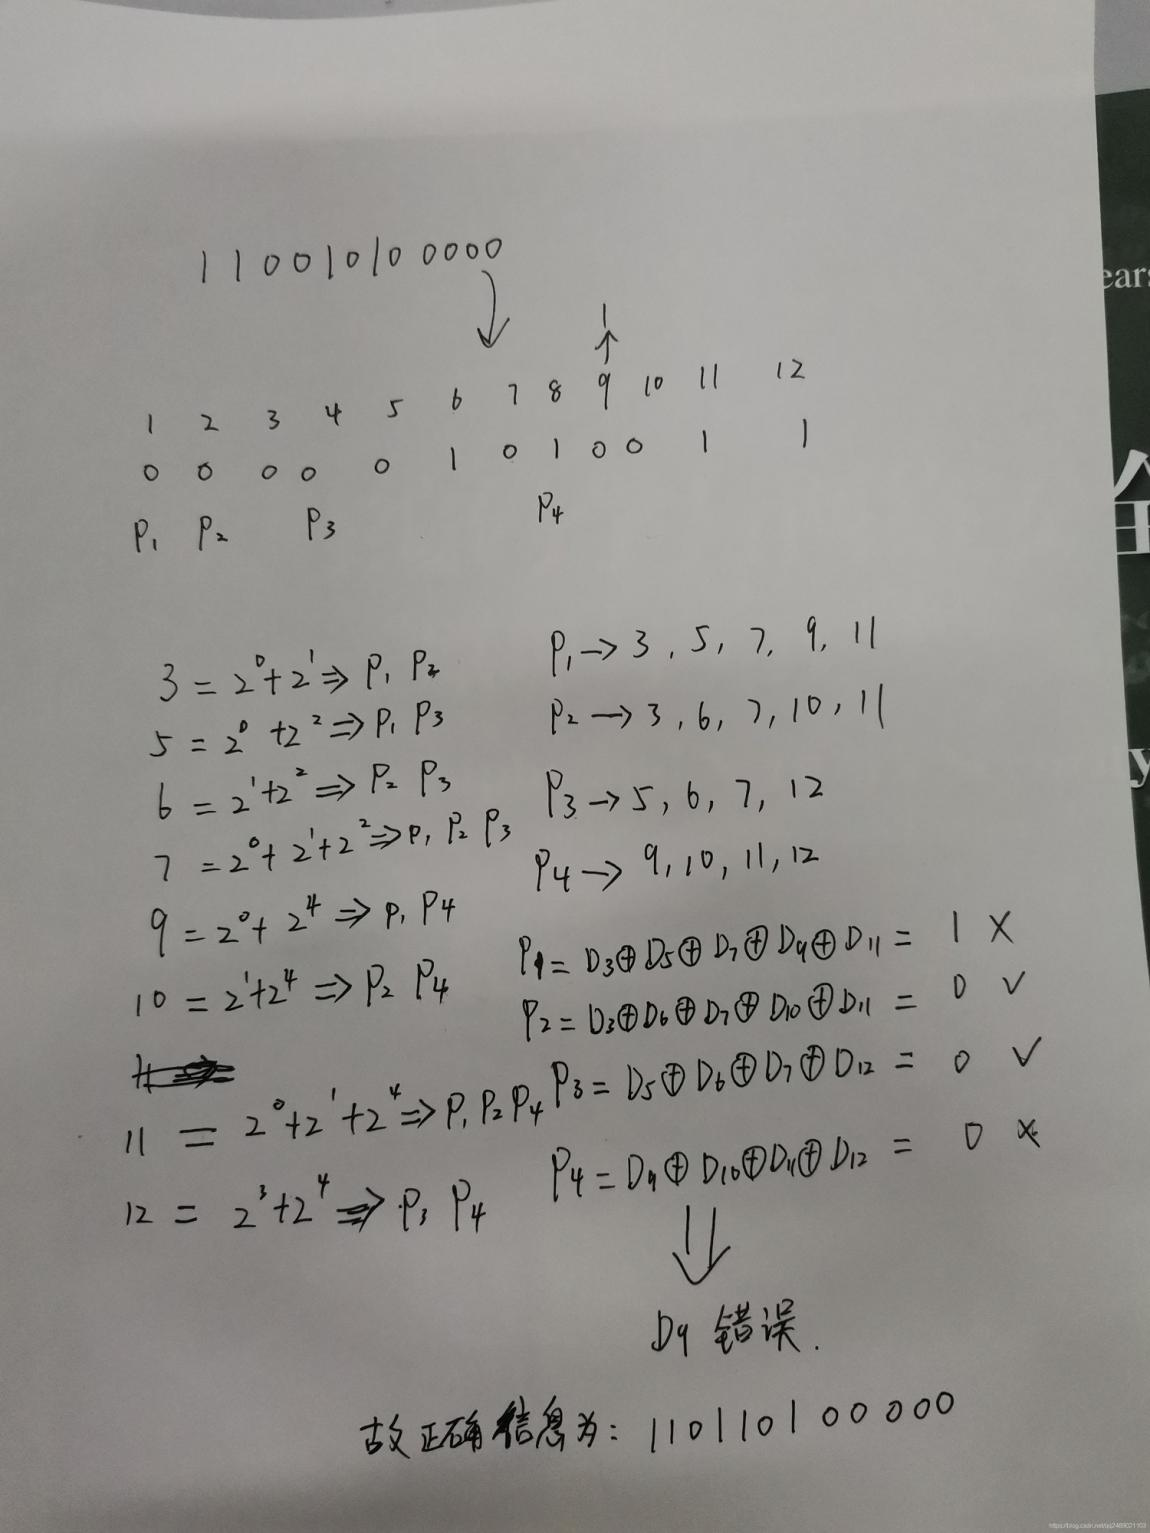 110010100000
1
1 2 3 4 5 6 7 8 9 10 11 12
0 0 0 0 0 1 0 1 0 0 1 1
P₁ P₂ P₃ P₄
3 = 2⁰+2¹ ⇒ P₁ P₂
5 = 2⁰+2² ⇒ P₁ P₃
6 = 2¹+2² ⇒ P₂ P₃
7 = 2⁰+2¹+2² ⇒ P₁ P₂ P₃
9 = 2⁰+2⁴ ⇒ P₁ P₄
10 = 2¹+2⁴ ⇒ P₂ P₄
11 = 2⁰+2¹+2⁴ ⇒ P₁ P₂ P₄
12 = 2³+2⁴ ⇒ P₃ P₄
P₁ → 3, 5, 7, 9, 11
P₂ → 3, 6, 7, 10, 11
P₃ → 5, 6, 7, 12
P₄ → 9, 10, 11, 12
P₁ = D₃⊕D₅⊕D₇⊕D₉⊕D₁₁ = 1 ×
P₂ = D₃⊕D₆⊕D₇⊕D₁₀⊕D₁₁ = 0 ✓
P₃ = D₅⊕D₆⊕D₇⊕D₁₂ = 0 ✓
P₄ = D₉⊕D₁₀⊕D₁₁⊕D₁₂ = 0 ×
D₉ 错误.
故正确信息为: 110110100000
ears
y